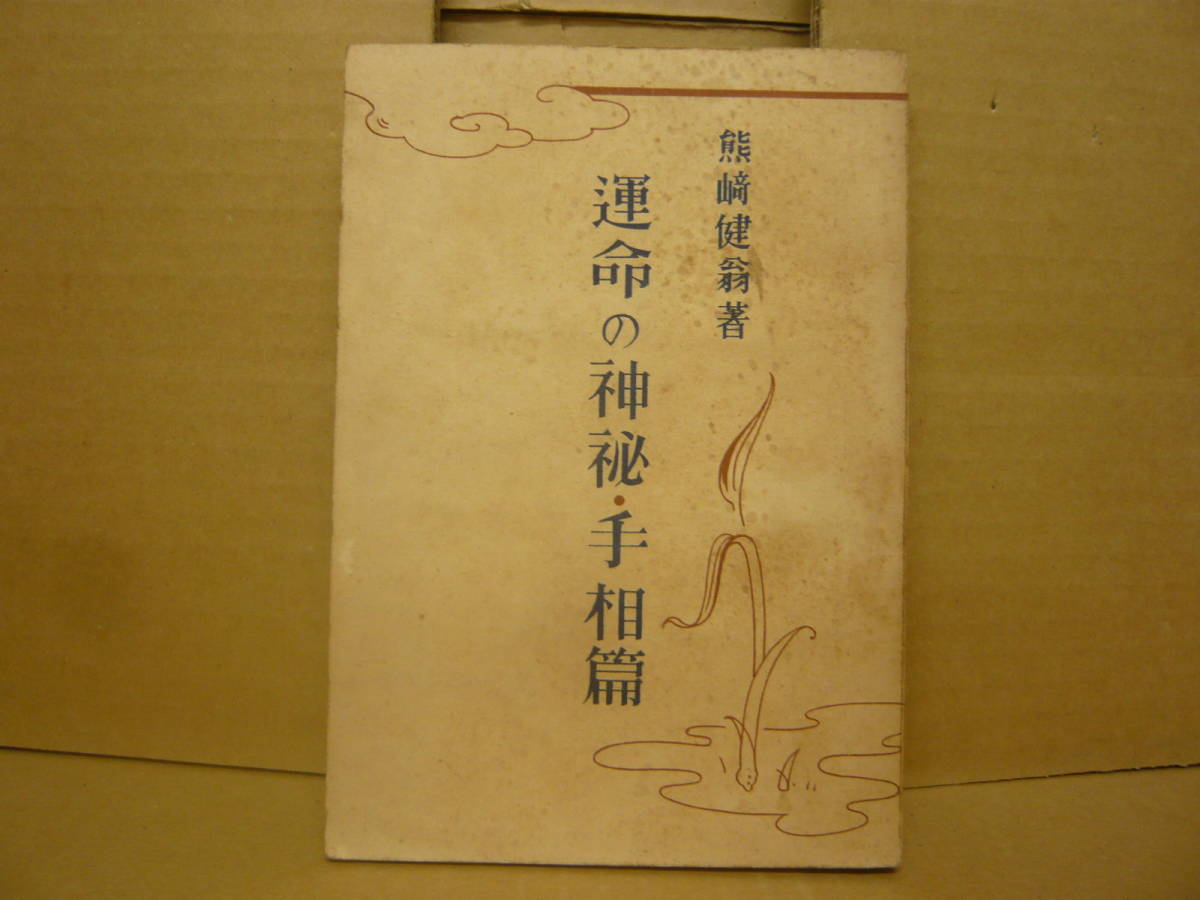 熊﨑健翁著
運命の神祕・手相篇